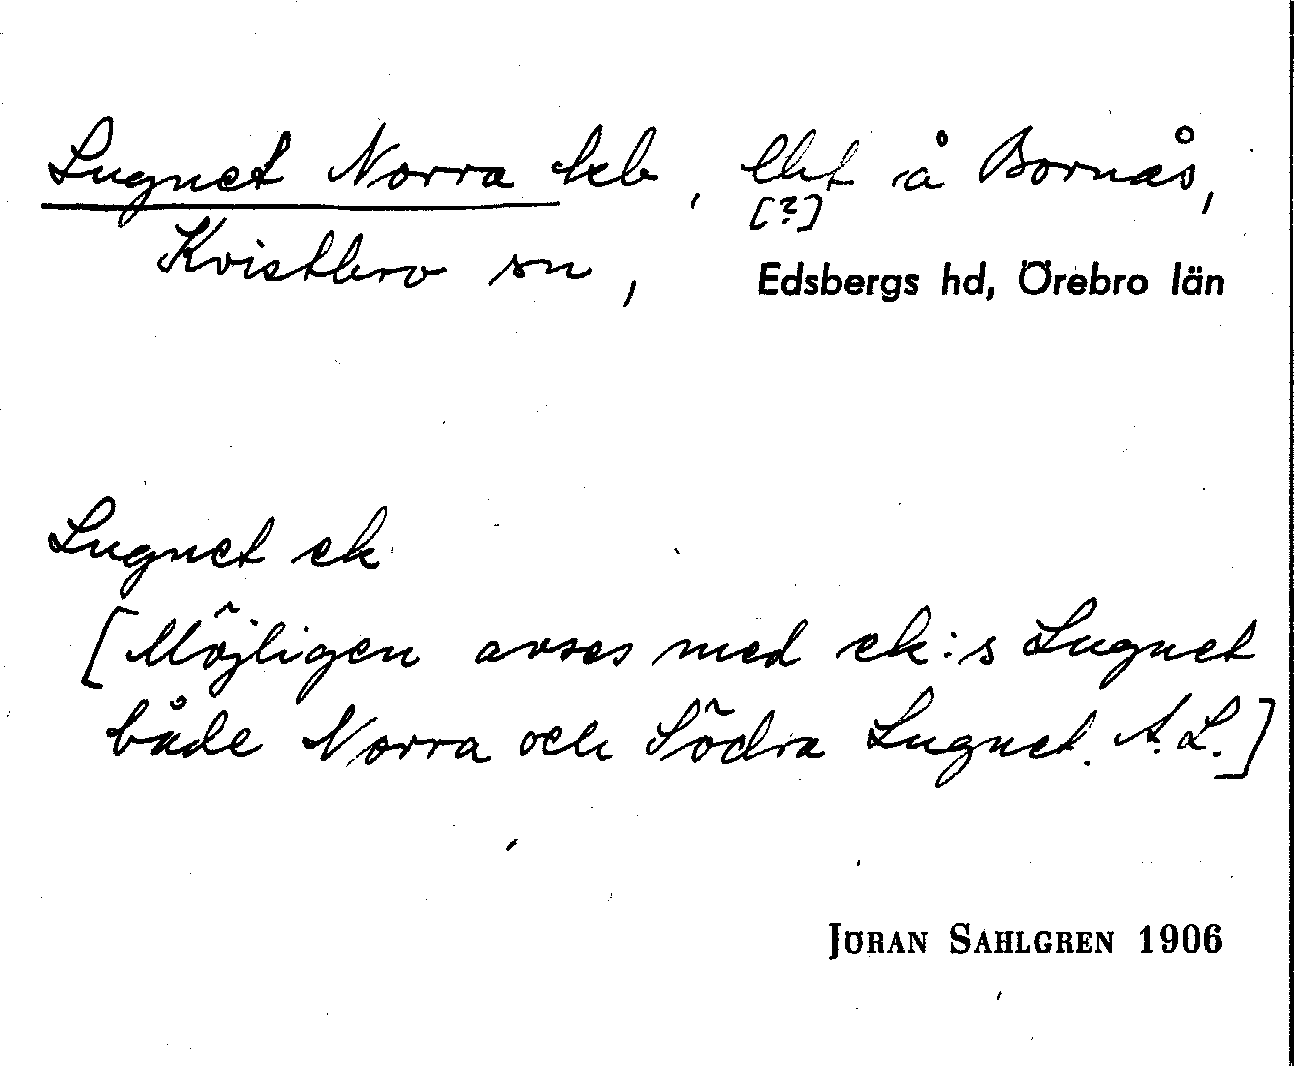 Lugnet Norra teb, lht å Bornås,
[?]
Kvistbro sn, Edsbergs hd, Örebro län
Lugnet ek
[Möjligen avses med ek:s Lugnet
både Norra och Södra Lugnet. A. L.]
JÖRAN SAHLGREN 1906